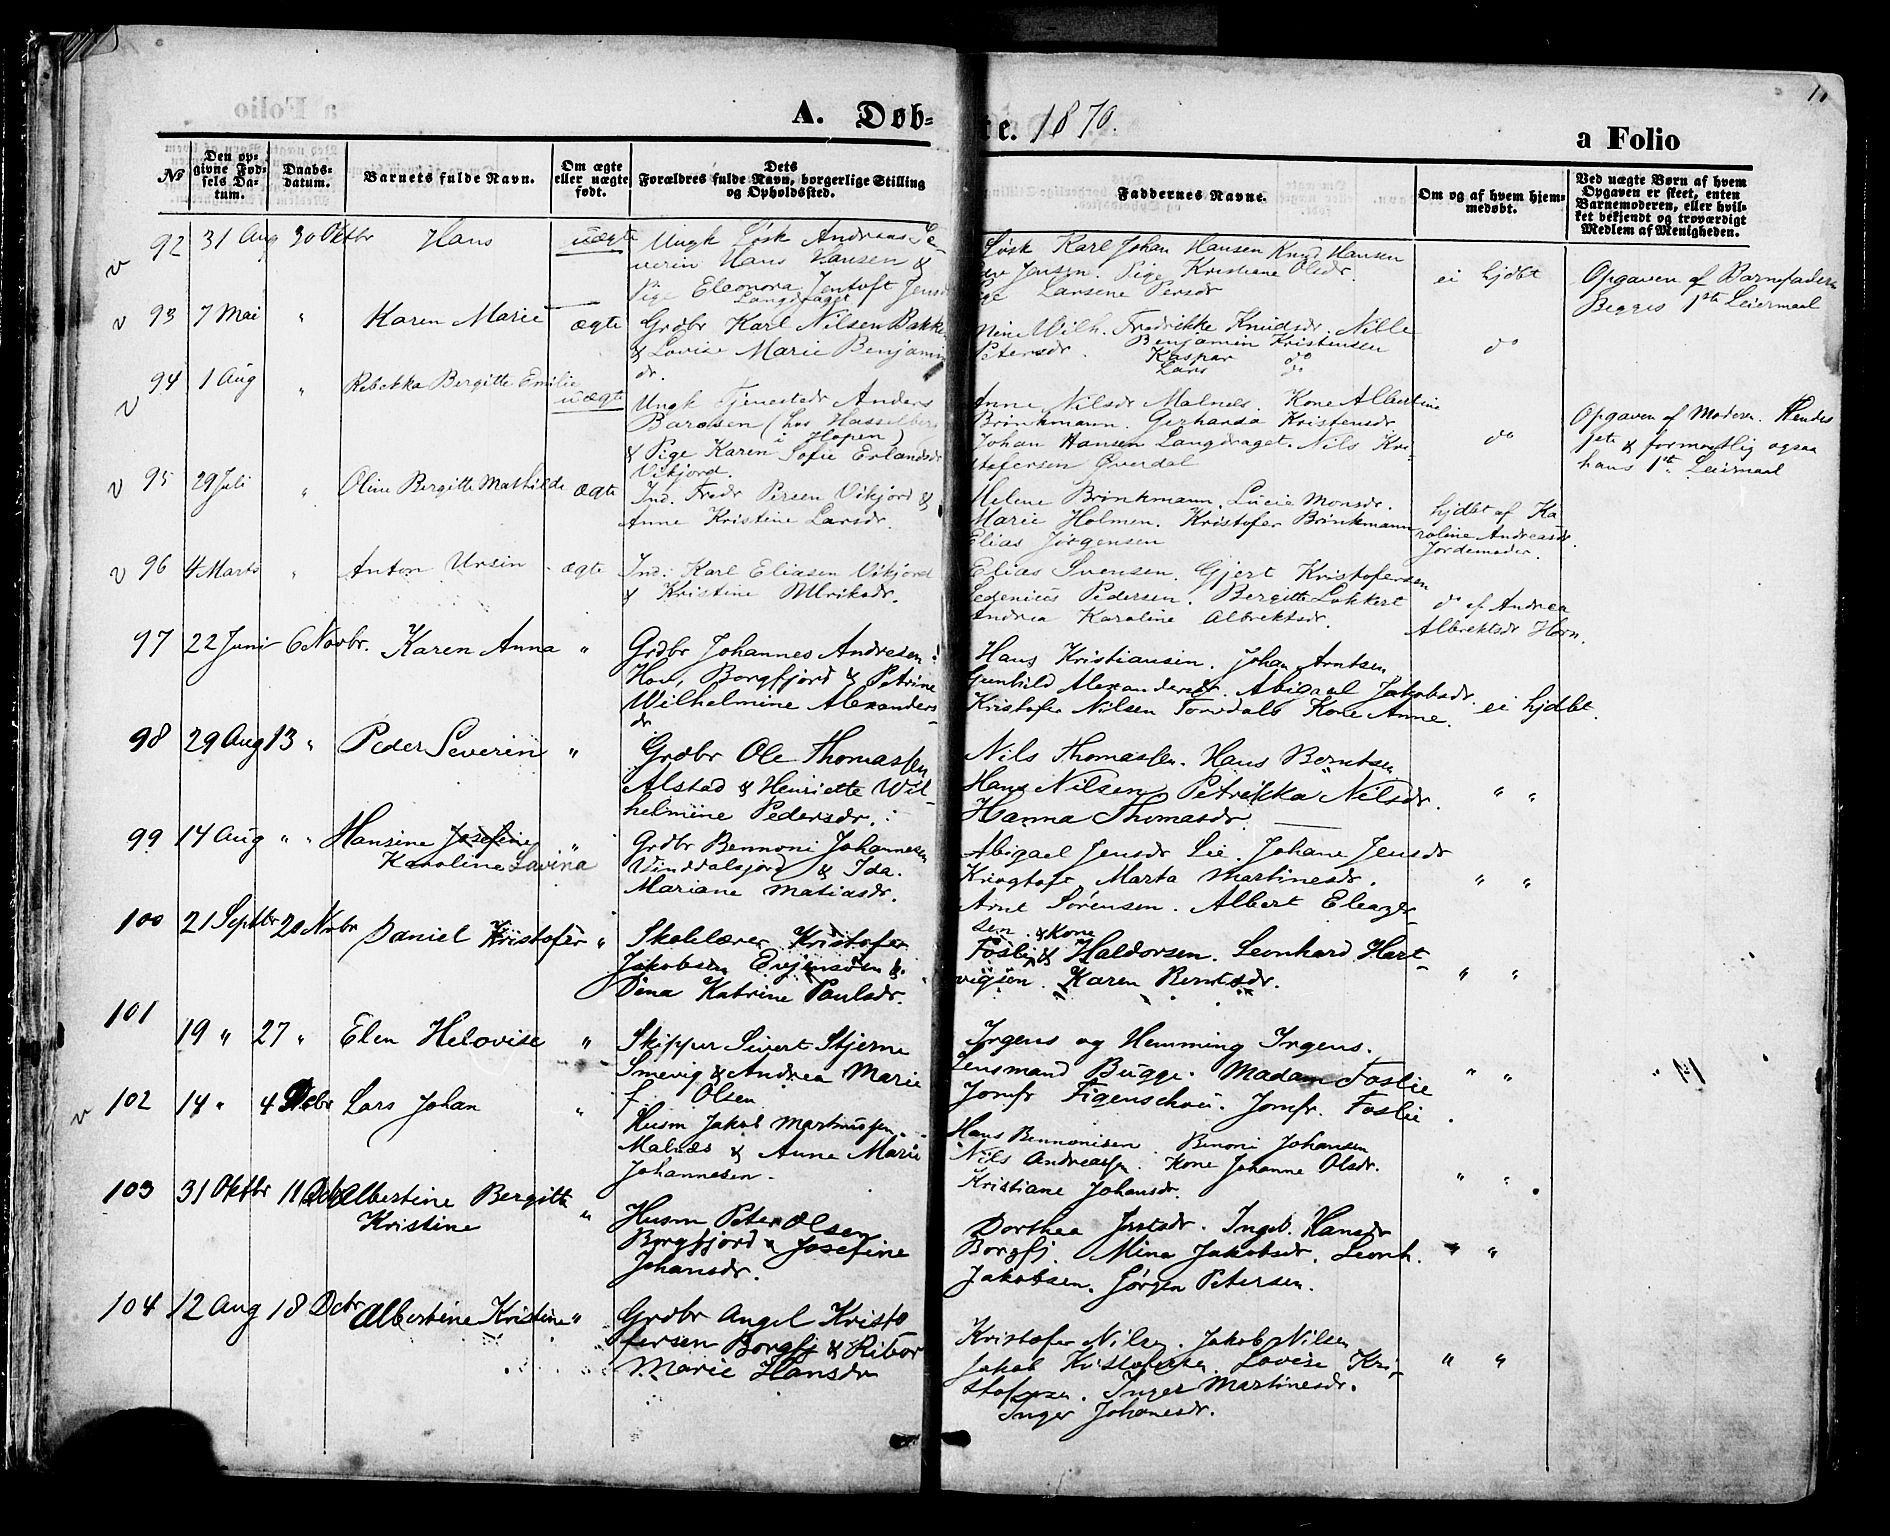 A. Døb-
te. 1870.
a Folio
11
№
Den op-
givne Fød-
sels Da-
tum.
Daabs-
datum.
Barnets fulde Navn.
Om ægte
eller uægte
født.
Dets
Forældres fulde Navn, borgerlige Stilling
og Opholdssted.
Faddernes Navne.
Om og af hvem hjem-
medøbt.
Ved uægte Børn af hvem
Opgaven er skeet, enten
Barnemoderen, eller hvil-
ket bekjendt og troværdigt
Medlem af Menigheden.
v 92 31 Aug 30 Oktbr Hans uægte
Ungk Løsk Andreas Se-
verin Hans Hansen &
Pige Eleonora Jentoft Jensdr
Langdraget
Løsk Karl Johan Hansen Knud Hansen
Jensen. Pige Kristiane Olsdr.
Larsene Persdr
ei hjdbt
Opgaven af Barnefaderen
Begges 1ste Leiermaal
v 93 7 Mai " Karen Marie ægte
Grdbr Karl Nilsen Bakke
& Lovise Marie Benjamin
dr.
Wilh. Fredrikke Knudsdr. Nille
Petersdr. Benjamin Kristensen
Kaspar do
Lars do
do
v 94 1 Aug " Rebekka Bergitte Emilie uægte
Ungk Tjenestedr Anders
Barosen (hos Hasselberg
i Hopen)
& Pige Karen Sofie Erlandsdr
Vikjord.
Anne Nilsdr Malnes. Kone Albertine
Brinkmann. Gerharda Kristensdr.
Johan Hansen Langdraget. Nils Kri-
stofersen Øverdal
do
Opgaven af Moderen. Hendes
1ste & formentlig ogsaa
hans 1ste Leiermaal
v 95 29 Juli " Oline Bergitte Mathilde ægte
Ind. Fredr Persen Vikjord &
Anne Kristine Larsdr.
Helene Brinkmann. Lucie Monsdr.
Marie Holmen. Kristofer Brinkmann
Elias Jørgensen
hjdbt af Ka-
roline Andreasdr.
Jordemoder.
v 96 4 Marts " Anton Ursin ægte
Ind. Karl Eliasen Vikjord
& Kristine Ulriksdr.
Elias Svensen. Gjert Kristofersen
Pedersen. Bergitte Lokkert
Andrea Karoline Albrektsdr.
do af Andrea
Albrektsdr Horn.
97 22 Juni 6 Novbr. Karen Anna "
Grdbr Johannes Andresen
Hov, Borgfjord & Petrine
Wilhelmine Alexanders-
dr
Hans Kristiansen. Johan Arntsen
Gunhild Alexandersdr. Abigael Jakobsdr.
Kristofer Nilsen Torsdals Kone Anne.
ei hjdbt.
98 29 Aug 13 " Peder Severin "
Grdbr Ole Thomassen
Alstad & Henriette Wil-
helmine Pedersdr.
Nils Thomassen. Hans Berntsen
Hans Nilsen. Petrikka Nilsdr.
Hanna Thomasdr.
" "
99 14 Aug " " Hansine Josefine "
Karoline Lavina
Grdbr Bennoni Johannesen
Vinddalsjord & Ida.
Mariane Matiasdr.
Abigael Jensdr Lie. Johane Jensdr
Kringtofr Marta Martinesdr.
Arnt Sørensen. Albert Eleazer-
sen.
" "
100 21 Septbr 20 Novbr Daniel Kristofer "
Skolelærer Kristofer
Jakobsen Evjensøen &
Dina Katrine Paulsdr.
& Kone
Foslie & Haldorsen. Leonhard Hart-
vigsen. Karen Berntsdr.
" "
101 19 " 27 " Elen Helovise "
Skipper Sivert Stjerne
Smevig & Andrea Marie
f. Olsen
Irgens og Hemming Irgens.
Lensmand Bugge. Madam Foslie
Jomfr Figenschou. Jomfr. Foslie.
" "
v 102 14 " 4 Decbr Lars Johan "
Husm Jakob Martinussen
Malnæs & Anne Marie
Johannesen
Hans Bennonisen. Benoni Johansen
Nils Andreassen. Kone Johanne Olsdr.
Kristiane Johansdr.
" "
103 31 Oktbr 11 Dcbr Albertine Bergitte "
Kristine
Husm Peter Olsen
Borgfjord & Josefine
Johansdr.
Dorthea Jostsdr. Ingeb. Hansdr
Borgfj. Mina Jakobsdr. Leonh.
Jakobsen. Jørgen Petersen.
" "
104 12 Aug 18 Dcbr Albertine Kristine "
Grdbr Angel Kristo
fersen Borgfj & Ribor
Marie Hansdr
Kristofer Nilsen. Jakob Nilsen
Jakob Kristofersen. Lovise Kri-
stofersen. Inger Martinesdr.
Inger Johanesdr.
" "